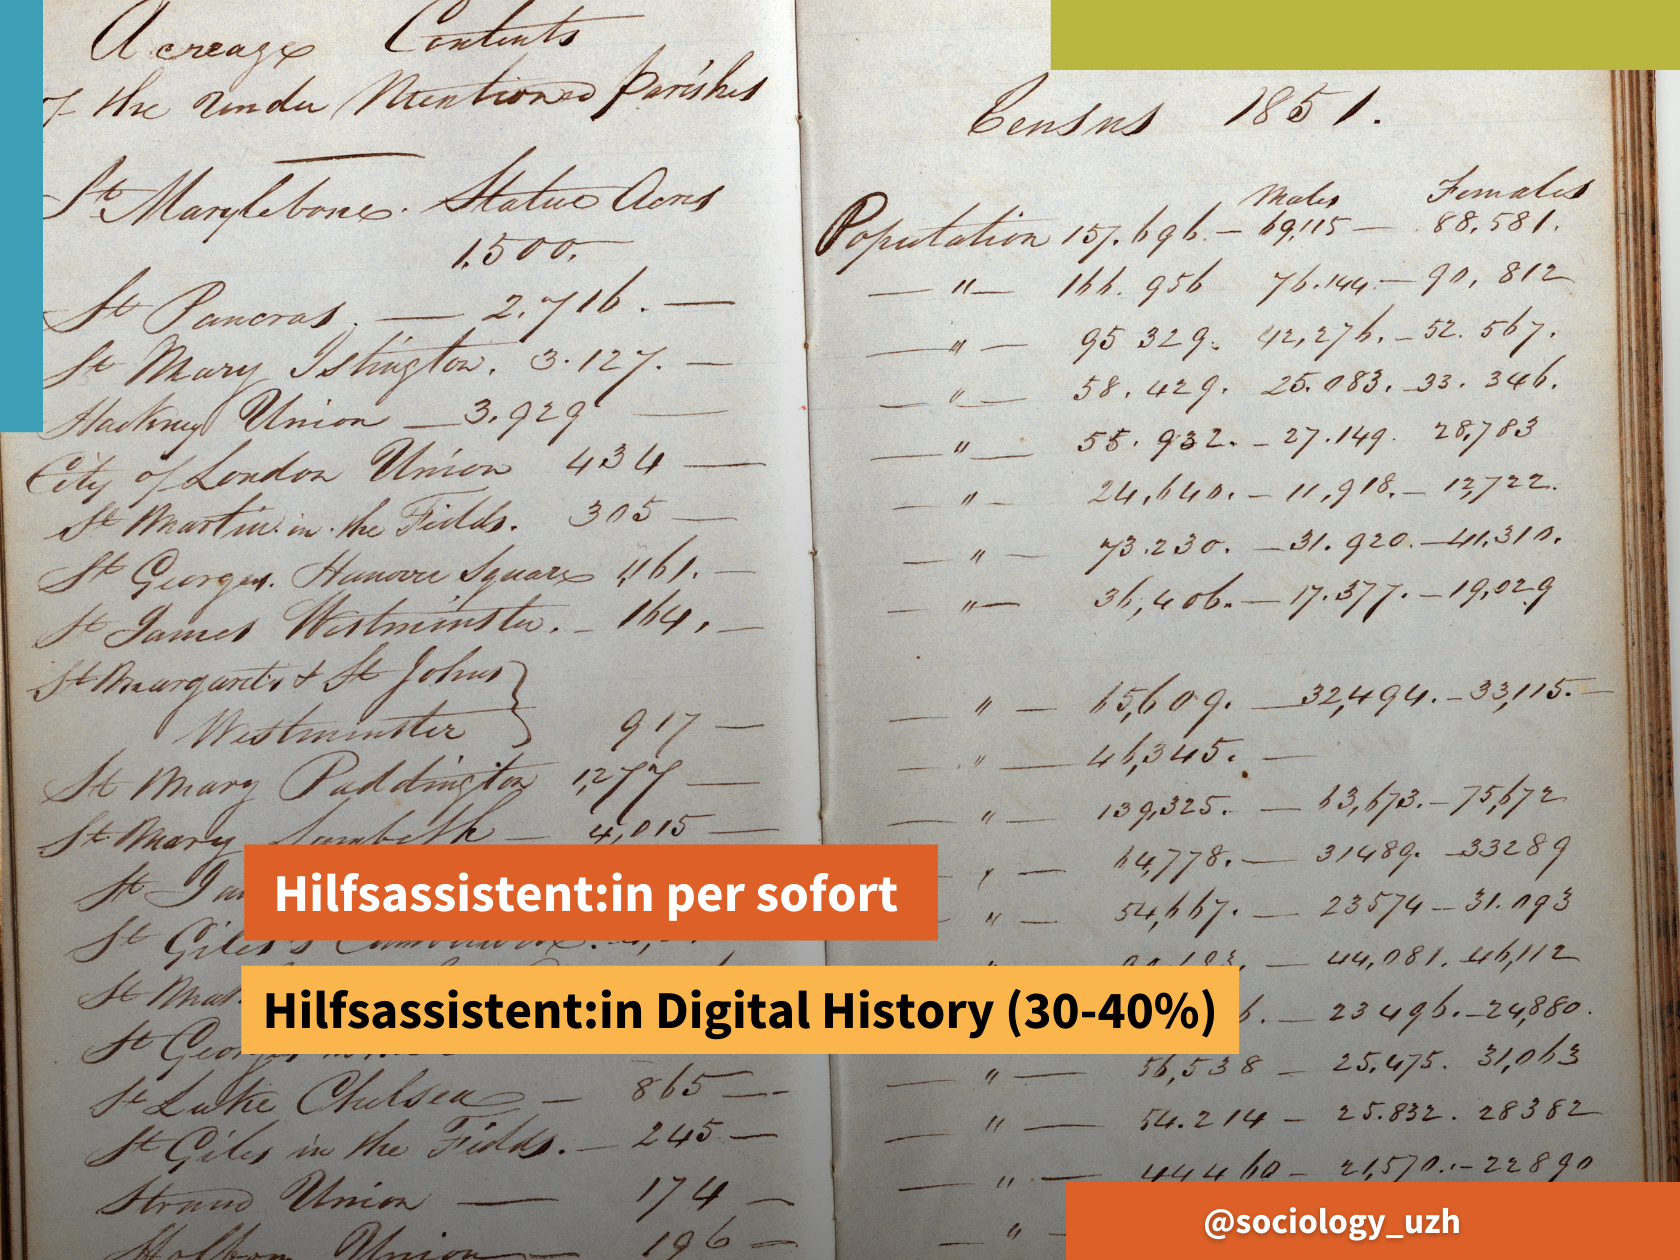 Acreage Contents
of the under Mentioned parishes
St Marylebone. Statue Acres
1.500.
St Pancras. — 2.716. —
St Mary Islington. 3.127. —
Hackney Union — 3.929 —
City of London Union 434 —
St Martin in the Fields. 305 —
St Georges. Hanover Square 1,161. —
St James Westminster. — 164, —
St Margarets & St Johns
Westminster 917 —
St Mary Paddington 1,277 —
St Mary Lambeth — 4,015 —
St
St Giles's Camberwell.
St
St
St Luke Chelsea — 865 —
St Giles in the Fields. — 245 —
Strand Union — 174 —
Holborn Union — 196 =
Census 1851.
Males Females
Population 157.696. — 69,115 — 88,581.
— " — 166.956 76.144. — 90,812
— " — 95 329. 42,276. — 52.567.
— " — 58.429. 25.083. — 33.346.
— " — 55.932. — 27.149. 28,783
— " — 24,640. — 11,918. — 12,722.
— " — 73.230. — 31.920. — 41.310.
— " — 36,406. — 17.377. — 19,029
— " — 65,609. — 32,494. — 33,115. —
— " — 46,345. —
— " — 139,325. — 63,673. — 75,672
" — 64,778. — 31489. — 33289
" — 54,667. — 23574 — 31.093
— 44,081. 46,112
6. — 23 496. — 24,880.
— " — 56,538 — 25.475. 31,063
— " — 54.214 — 25.832. 28382
— " — 444 60 — 21,570. — 22890
— "
Hilfsassistent:in per sofort
Hilfsassistent:in Digital History (30-40%)
@sociology_uzh